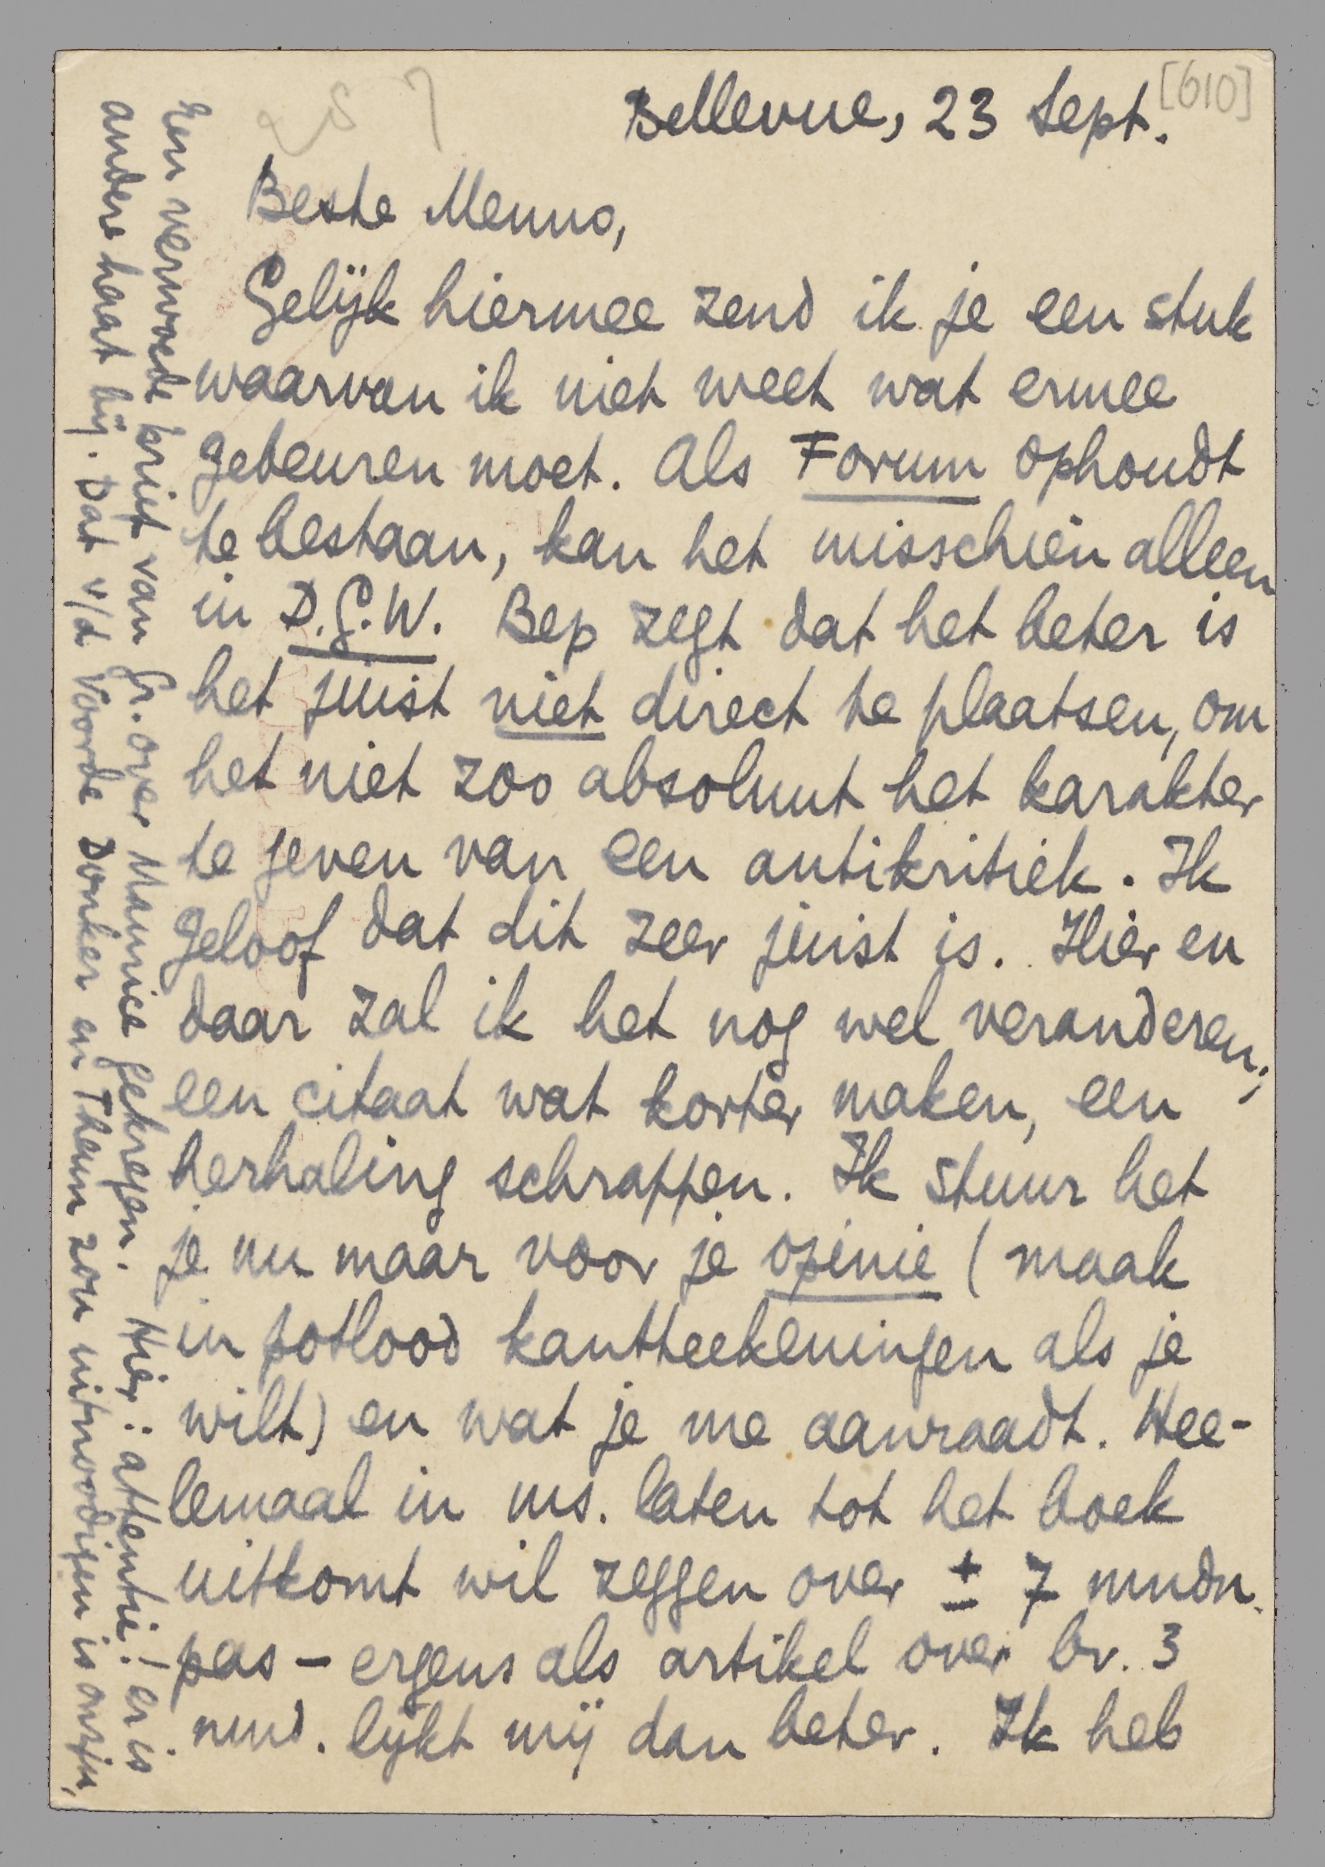 [610]
Bellevue, 23 Sept.
Beste Menno,
Gelijk hiermee zend ik je een stuk
waarvan ik niet weet wat ermee
gebeuren moet. Als Forum ophoudt
te bestaan, kan het misschien alleen
in D.G.W. Bep zegt dat het beter is
het juist niet direct te plaatsen, om
het niet zoo absoluut het karakter
te geven van een antikritiek. Ik
geloof dat dit zeer juist is. Hier en
daar zal ik het nog wel veranderen;
een citaat wat korter maken, een
herhaling schrappen. Ik stuur het
je nu maar voor je opinie (maak
in potlood kantteekeningen als je
wilt) en wat je me aanraadt. Hee-
lemaal in ms. laten tot het boek
uitkomt wil zeggen over ± 7 mndn.
pas - ergens als artikel over bv. 3
mnd. lijkt mij dan beter. Ik heb
Een verwoede krief van Gr. over Maurice gekregen. Hier: attentie! er is
andere haat bij. Dat v/d Voorde Donker en Theun zou uitnoodigen is onzin,